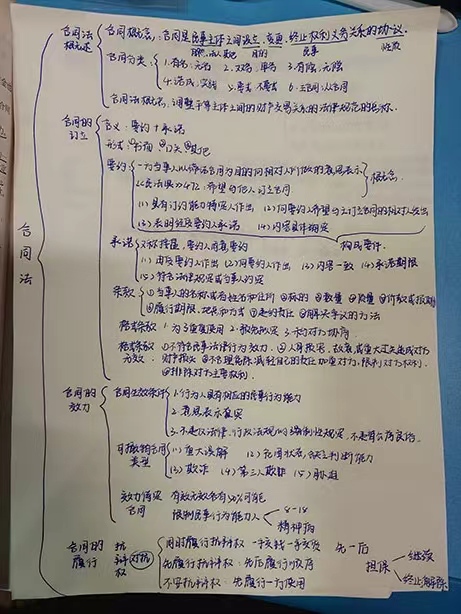 合同法
合同法概述
合同概念:合同是民事主体之间设立、变更、终止权利义务关系的协议。
目的 民事
合同分类:1.有名;无名 2.双务,单务 3.有偿,无偿
4.诺成,实践 5.要式 不要式 6.主合同;从合同
合同法概念,调整平等主体之间的财产交易关系的法律规范的总称
合同的订立
含义:要约+承诺
形式:①书面 ②口头 ③其他
要约:一方当事人以缔结合同为目的向相对人所做的意思表示
希望与他人订立合同
概念
(1)具有订约能力特定人作出 (2)向要约人希望与之订立合同的相对人发出
(3)表明经受要约人承诺 (4)内容具体确定
构成要件
承诺
(1)由受要约人作出 (2)向要约人作出 (3)内容一致 (4)承诺期限
(5)符合法律规定或当事人约定
条款:①当事人的名称或者姓名和住所 ②标的 ③数量 ④质量 ⑤价款或报酬
⑥履行期限、地点和方式 ⑦违约责任 ⑧解决争议的方法
格式条款 1.为了重复使用 2.预先拟定 3.
格式条款无效:①不符合民事法律行为效力,②人身损害,故意或重大过失造成对方
财产损失 ③不合理免除减轻自己的责任加重对方,限制对方权利,
④排除对方主要权利。
合同的效力
合同生效条件
1.行为人具有相应的民事行为能力
2.意思表示真实
3.不违反法律、行政法规的强制性规定,不违背公序良俗。
可撤销合同类型
(1)重大误解 (2)危困状态,缺乏判断能力
(3)欺诈 (4)第三人欺诈 (5)胁迫
效力待定合同
有效无效各有50%可能
限制民事行为能力人
8-18
精神病
合同的履行
抗辩权(对抗)
同时履行抗辩权 一手交钱一手交货
先履行抗辩权:先后履行顺序
不安抗辩权:先履行一方使用
先一后
担保
继续
终止解除